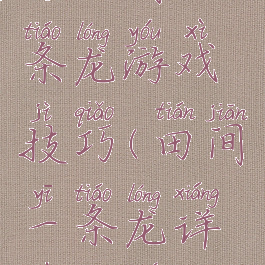 tiáo lóng yóu xì
条龙游戏
jì qiǎo tián jiān
技巧(田间
yī tiáo lóng xiáng
一条龙详